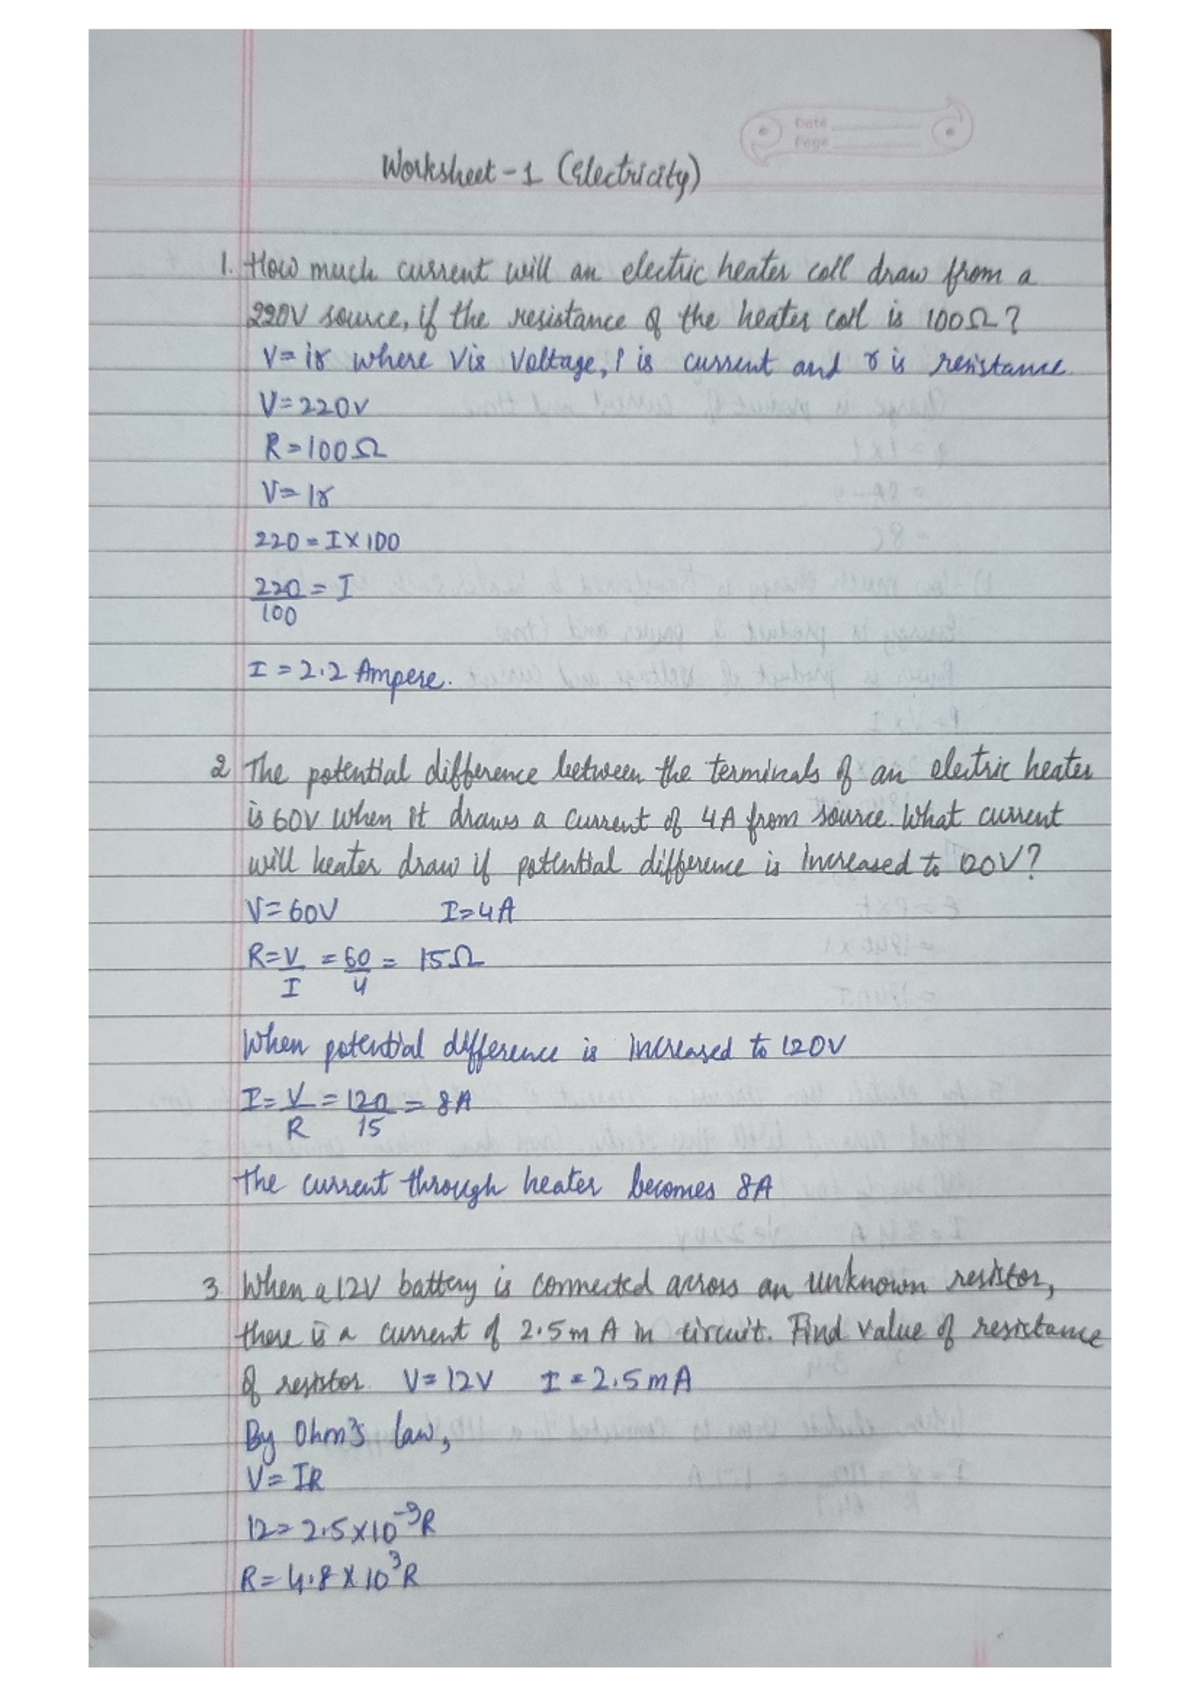 Date
Page
Worksheet-1 (Electricity)
1. How much current will an electric heater coil draw from a
220V source, if the resistance of the heater coil is 100Ω?
V=ir where V is Voltage, I is current and r is resistance.
V=220V
R=100Ω
V=Ir
220=I×100
220/100=I
I=2.2 Ampere.
2 The potential difference between the terminals of an electric heater
is 60V when it draws a current of 4A from source. What current
will heater draw if potential difference is increased to 120V?
V=60V I=4A
R=V/I=60/4=15Ω
When potential difference is increased to 120V
I=V/R=120/15=8A
The current through heater becomes 8A
3. When a 12V battery is connected across an unknown resistor,
there is a current of 2.5mA in circuit. Find value of resistance
of resistor. V=12V I=2.5mA
By Ohm's law,
V=IR
12=2.5×10⁻³R
R=4.8×10³R